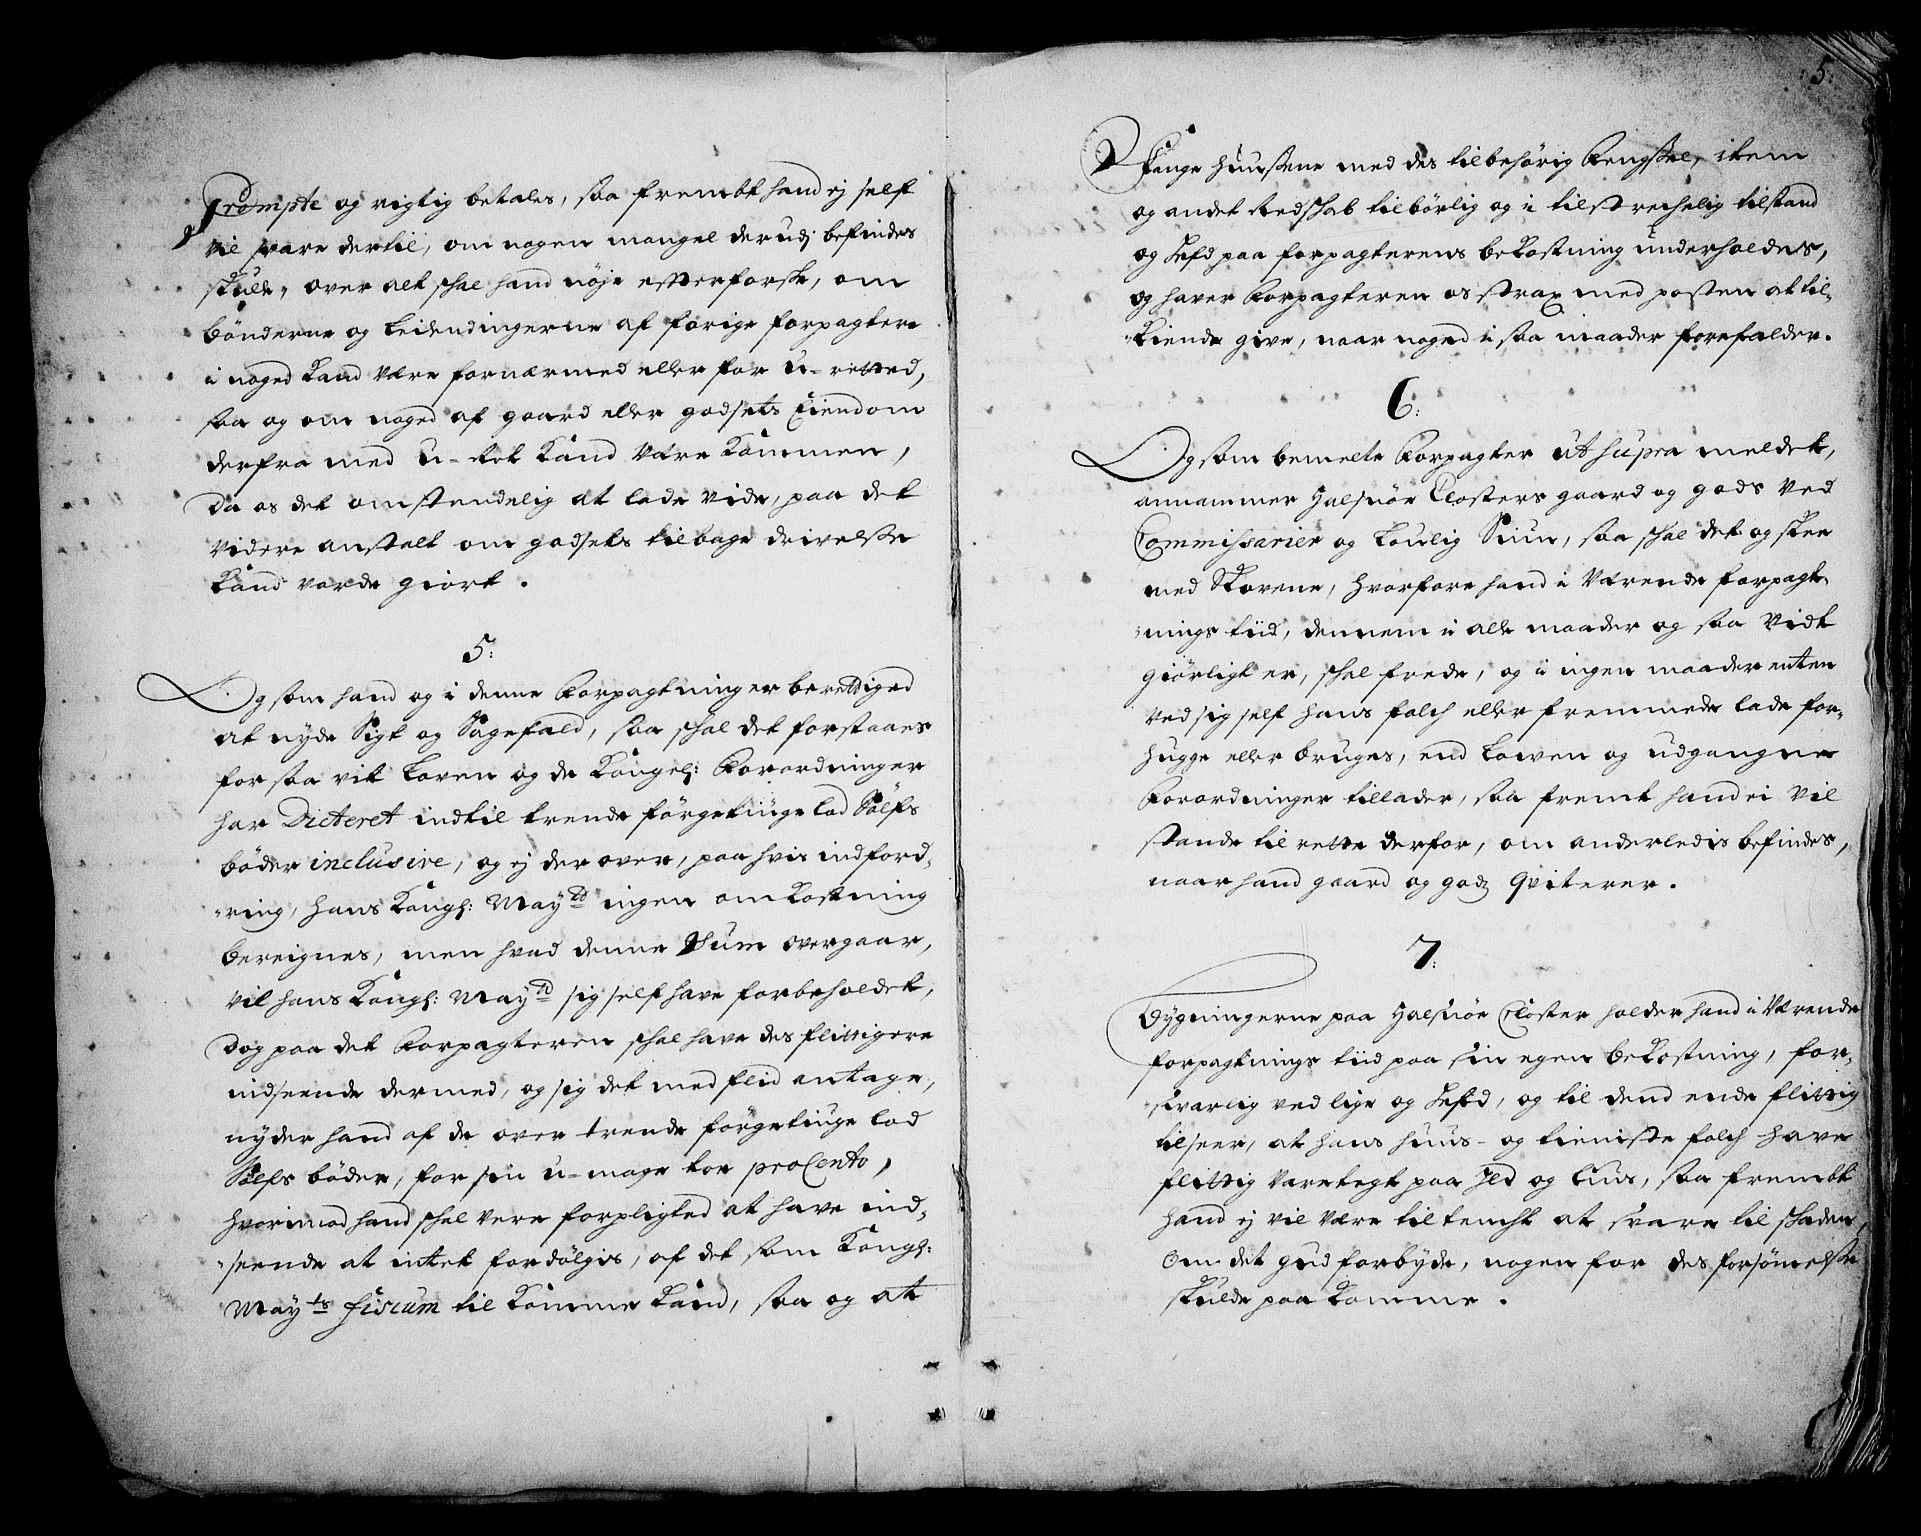 Prompte og rigtig betales, saa frembt hand ej self
vil svare dertil, om nogen mangel derudj befindes
skulle, over alt schal hand nøje efterforske, om
bønderne og Leilendingerne af forige forpagtere
i noged kand være fornærmed eller for u-retted,
saa og om noged af gaard eller godsets Eiendom
derfra med u-ret kand være kommen,
da os det omstendelig at lade vide, paa det
videre anstalt om godsets tilbage drivelse
kand vorde giort.
5:
Og som hand og i denne Forpagtning er berettiged
at nyde Sigt og Sagefald, saa schal det forstaaes
for saa vit Loven og de Kongel: Forordninger
har Dicteret indtil trende förgetiuge lod Sölfs
bøder inclusive, og ej derover, paa hvis indford-
ring, hans Kongl: Mayᵗᵗ ingen omkostning
bereignes, men hvad denne Sum overgaar,
vil hans Kongl: Mayᵗᵗ sig self have forbeholdet,
dog paa det Forpagteren schal have des flittigere
indseende dermed, og sig det med flid antage,
nyder hand af de over trende förgetiuge lod
Sølfs bøder, for sin u-mage tor proCento,
hvorimod hand schal vere forpligted at have ind-
seende at intet fordølgis, af det som Kongl:
Mayᵗˢ fiscum til komme kand, saa og at
:5:
Fange huussene med des tilbehörig Fengssel, item
og andet Redschab tilbörlig og i tilstrechelig tilstand
og Hefd paa forpagterens bekostning underholdes,
og haver Forpagteren os strax med posten at til-
kiende give, naar noged i saa maader forefalder.
6:
Og som bemelte Forpagter ut supra meldet,
annammer Halsnöe Closters gaard og gods ved
Commissarier og Loulig Siun, saa schal det og skee
med Skovene, hvorfore hand i værende forpagt-
nings tiid, dennem i alle maader og saa vidt
giörligt er, schal frede, og i ingen maader enten
ved sig self hans folch eller fremmede lade for-
hugge eller bruges, end Lowen og udgangne
Forordninger tillader, saa fremt hand ei vil
stande til rette derfor, om anderledis befindes,
naar hand gaard og godz qviterer.
7:
Bygningerne paa Halsnöe Closter holder hand i værende
forpagtnings tiid paa sin egen bekostning, for-
svarlig ved lige og Hefd, og til dend ende flittig
tilseer, at hans huus- og tieniste folch have
flittig varetegt paa Ild og Lius, saa frembt
hand ej vil være tiltencht at svare til schaden,
om det gud forbyde, nogen for des forsömelse
skulde paa komme.